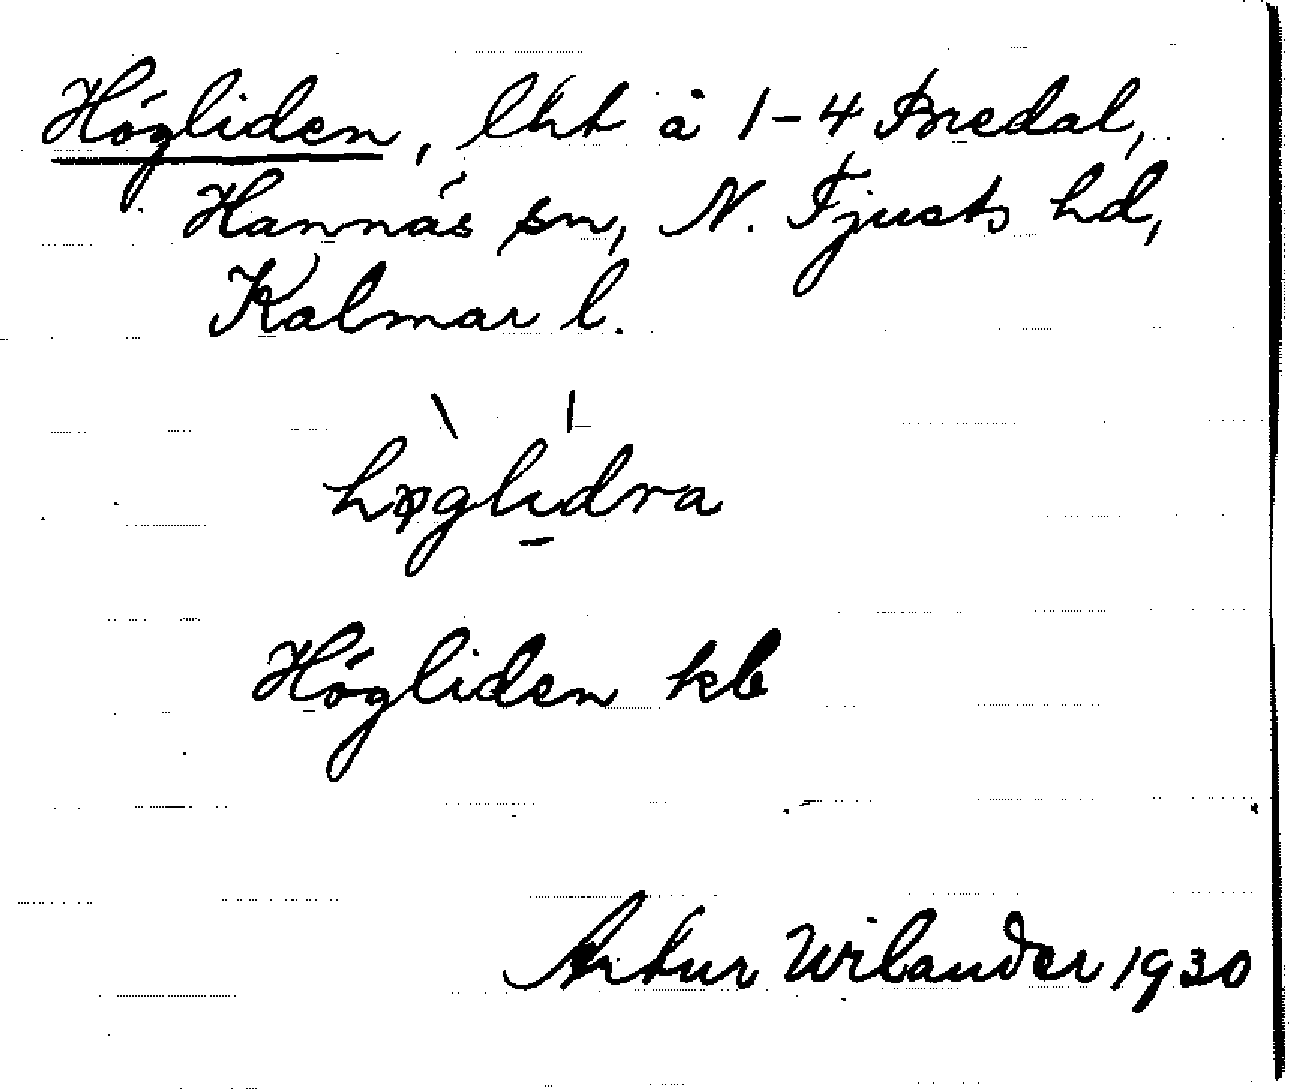 Högliden, lht å 1-4 Bredal,
Hannäs sn, N. Tjusts hd,
Kalmar l.
høglịdna
Högliden kb
Artur Wilander 1930